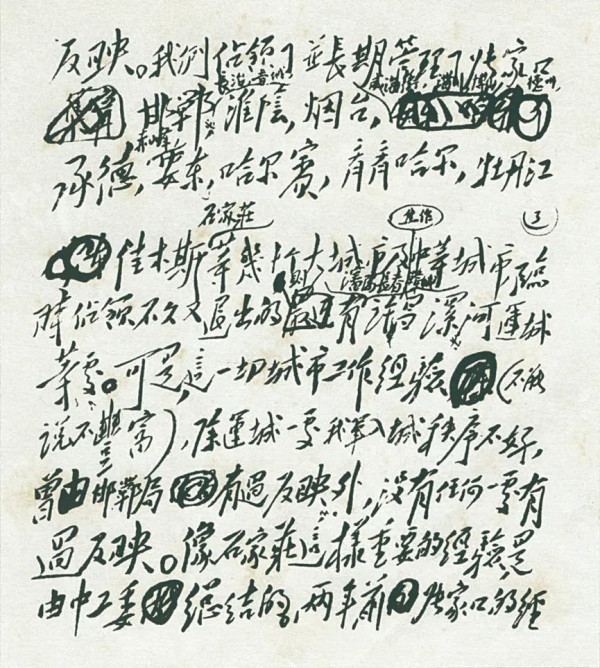 反映。我們佔領了並長期管理了张家口
長治,晉城, 威海衛,淄川,博山,德州,
邯鄲,淮陰,烟台,
赤峰
承德,安东,哈尔賓,齊齊哈尔,牡丹江
石家莊 焦作
佳木斯等幾十大城市及中等城市,臨
時佔領不久又退出的則有漯河運城
等處。可是,這一切城市工作經驗(不能
說不豐富),除運城一處我軍入城秩序不好,
曾由邯鄲局有過反映外,沒有任何一處有
過反映。像石家莊這樣重要的經驗是
由中工委總結的,两年前张家口的經